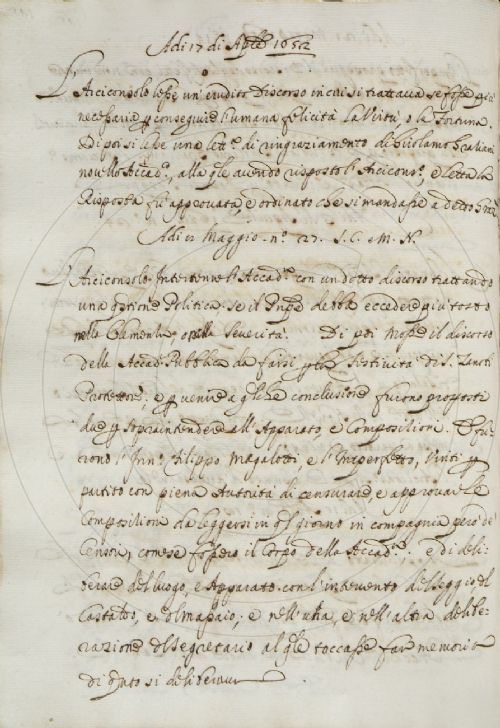 Adi 17 di Aple 1652
L'Arciconsolo lesse un'erudito Discorso in cui si trattaua se fosse più
necessaria p conseguire l'umana felicità La Virtù, o la Fortuna.
Di poi si lesse una lett.ª di ringraziamento di Girolamo
nouello Accad.º, alla qle auendo risposto l'Arcicons.º, e letta la
Risposta fu approuata, e ordinato che si mandasse a detto
Adi 12 Maggio nº 27. S. C. e M. N.
L'Arciconsolo Intertenne l'Accad.ª con un dotto discorso trattando
una qstione Politica se il Pnpe debba eccedere più tosto
nella Clemenza, o nella Seuerità. Di poi Mosse il discorso
della Accad.ª Pubblica da farsi p la Festiuità di S. Zanobi
Protettore; e p uenire a qlche conclusione furono proposti
due p sopraintendere all'Apparato, e Composizioni. E fu-
rono l'Inn.º Filippo Magalotti, e l'Imperfetto, Vinti p
partito con piena Autorità di censurare e approuar le
Composizioni da leggersi in ql giorno in compagnia però de'
Censori, come se fossero il Corpo della Accad.ª; e di deli-
berare del luogo, e Apparato con l'interuento del Seggio del
Castaldo, e del Massaio; e nell'una, e nell'altra delibe-
razione del Segretario al qle toccasse far memoria
di qnto si deliberaua